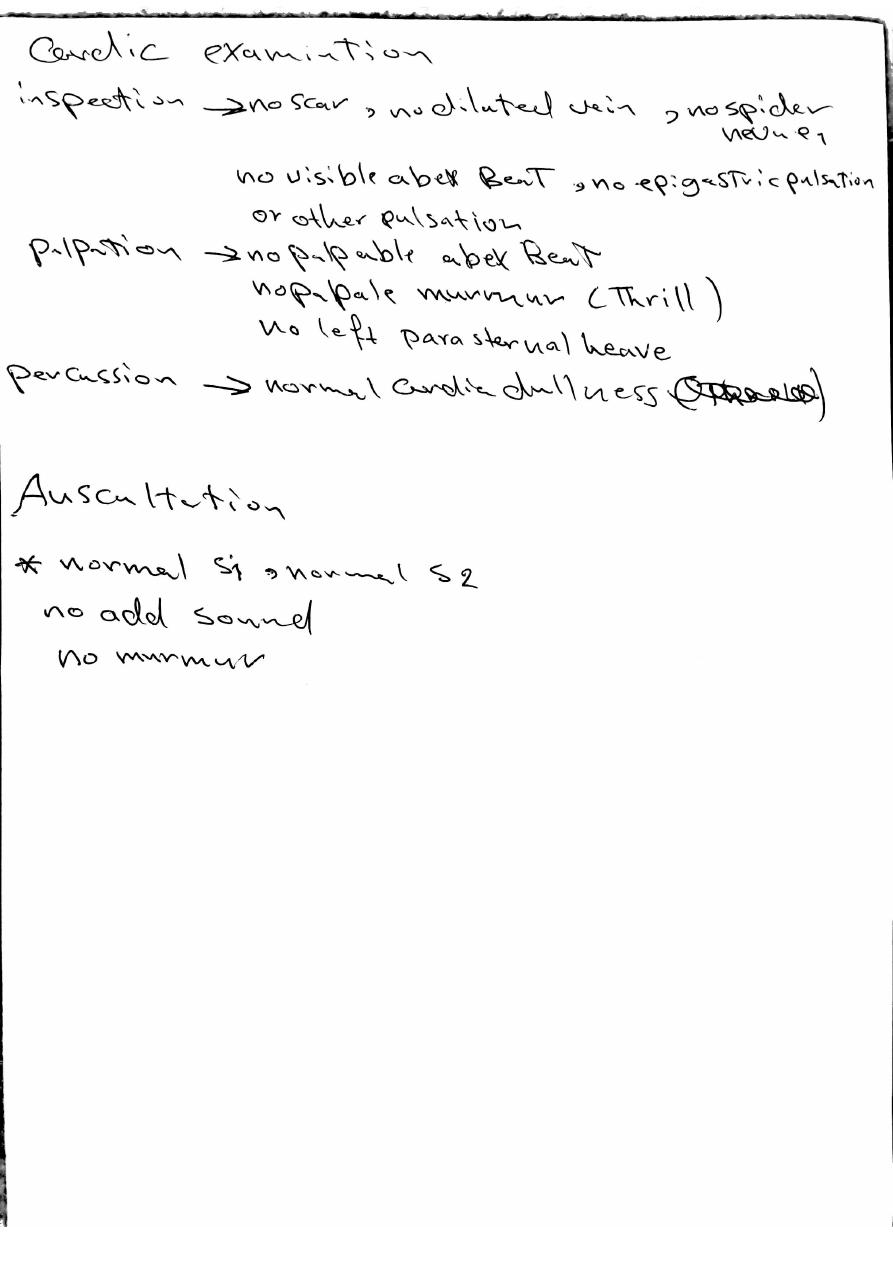 Cardic examintion
inspection → no scar, no diluted vein, no spider
neuve,
no visible abex Beat, no epigastric pulsation
or other pulsation
palpation → no palpable abex Beat
no palpale murmur (Thrill)
no left parasternal heave
percussion → normal cardia dullness
Auscultation
* normal S1, normal S2
no add sound
no murmur